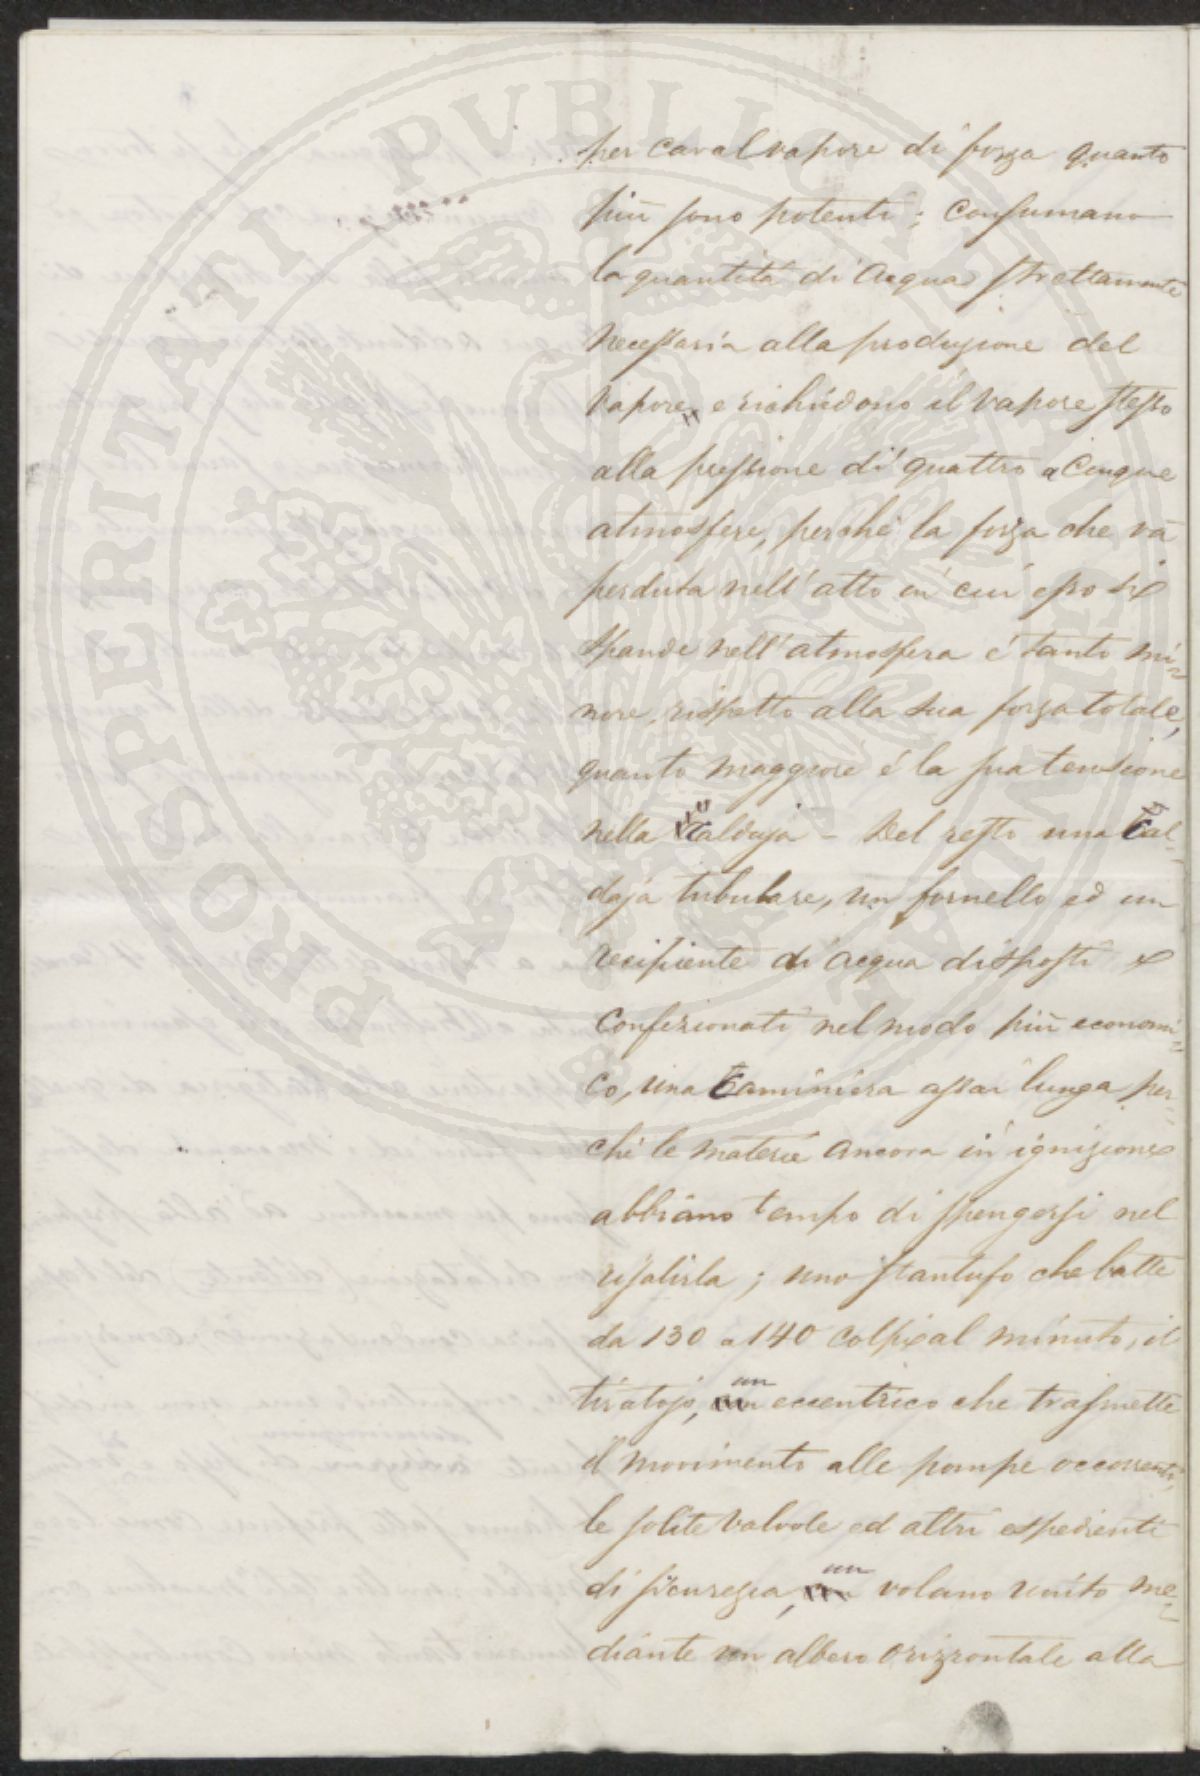 per caval vapore di forza quanto
più sono potenti; consumano
la quantità di acqua strettamente
necessaria alla produzione del
vapore, e richiedono il vapore stesso
alla pressione di quattro a cinque
atmosfere, perchè la forza che va
perduta nell'atto in cui esso si
spande nell'atmosfera é tanto mi=
nore, rispetto alla sua forza totale,
quanto maggiore é la sua tensione
nella Caldaja - Del resto una Cal=
daja tubulare, un fornello ed un
recipiente di acqua disposti e
confezionati nel modo più economi=
co, una Caminiera assai lunga per=
chè le materie ancora in ignizione
abbiano tempo di spengersi nel
risalirla; uno stantufo che batte
da 130 a 140 colpi al minuto, il
tiratojo, un eccentrico che trasmette
il movimento alle pompe occorrenti,
le solite valvole ed altri espedienti
di sicurezza, un volano unito me=
diante un albero orizzontale alla
PROSPERITATI PUBLICAE AUGENDAE